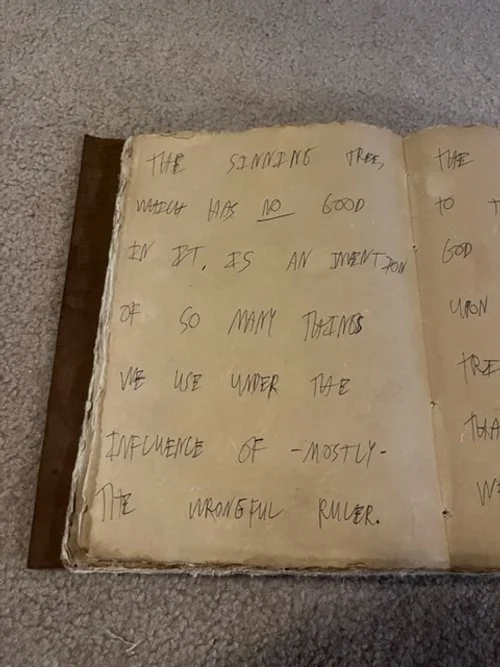 THE SINNING TREE,
WHICH HAS NO GOOD
IN IT, IS AN INVENTION
OF SO MANY THINGS
WE USE UNDER THE
INFLUENCE OF -MOSTLY-
THE WRONGFUL RULER.
THE
TO
GOD
UPON
TREE